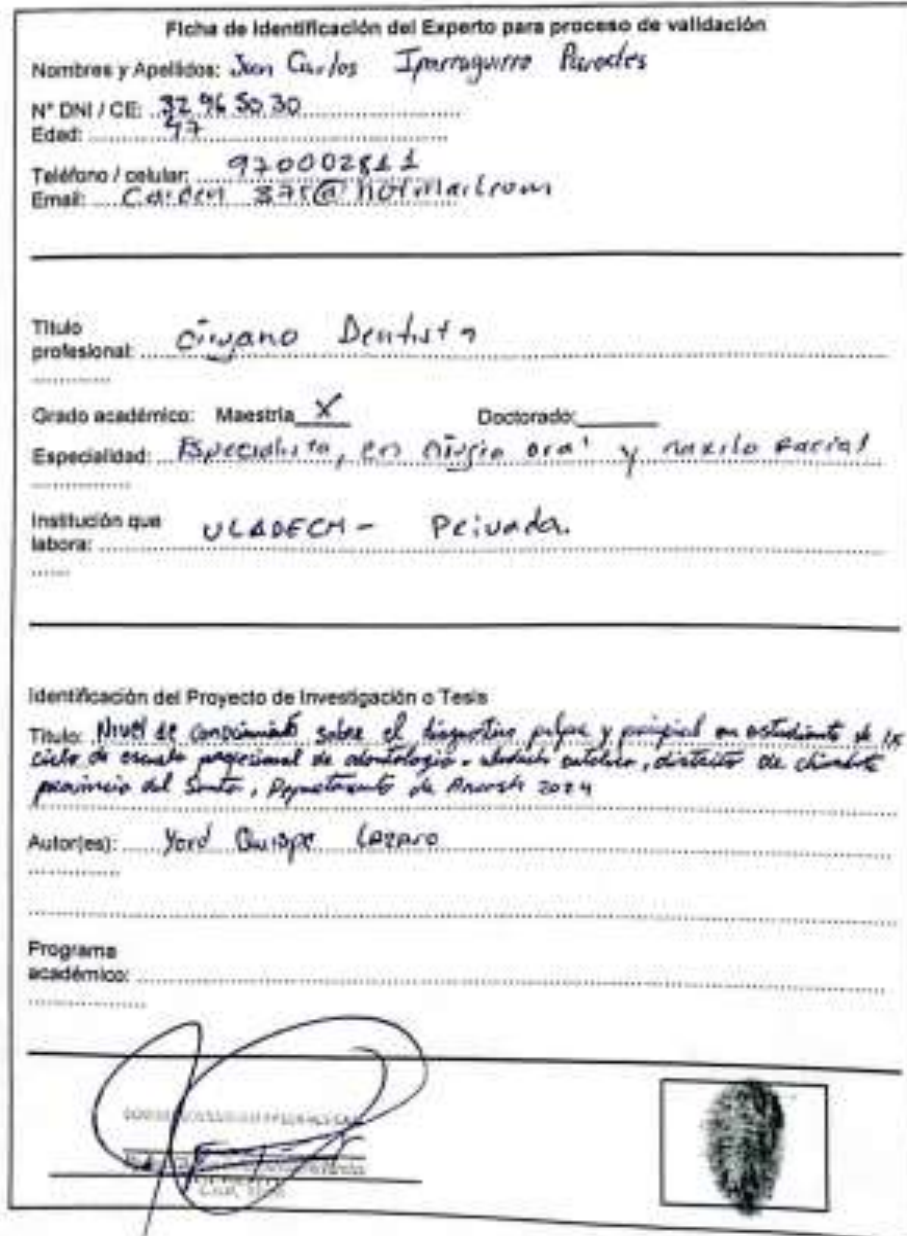 Ficha de Identificación del Experto para proceso de validación
Nombres y Apellidos: Juan Carlos Iparraguirre Paredes
N° DNI / CE: 32965030
Edad: 47
Teléfono / celular: 970002811
Email: 375@hotmail.com
Título
profesional: Cirujano Dentista
Grado académico: Maestría X Doctorado:
Especialidad: Especialista, en cirugía oral y maxilo facial
Institución que
labora: ULADECH - Privada.
Identificación del Proyecto de Investigación o Tesis
Título: Nivel de conocimiento sobre el diagnostico pulpar y periapical en estudiante de
ciclo de escuela profesional de odontologia. catolica, distrito de chimbote
provincia del Santa, Departamento de Ancash 2024
Autor(es): Yord Quispe Lazaro
Programa
académico: